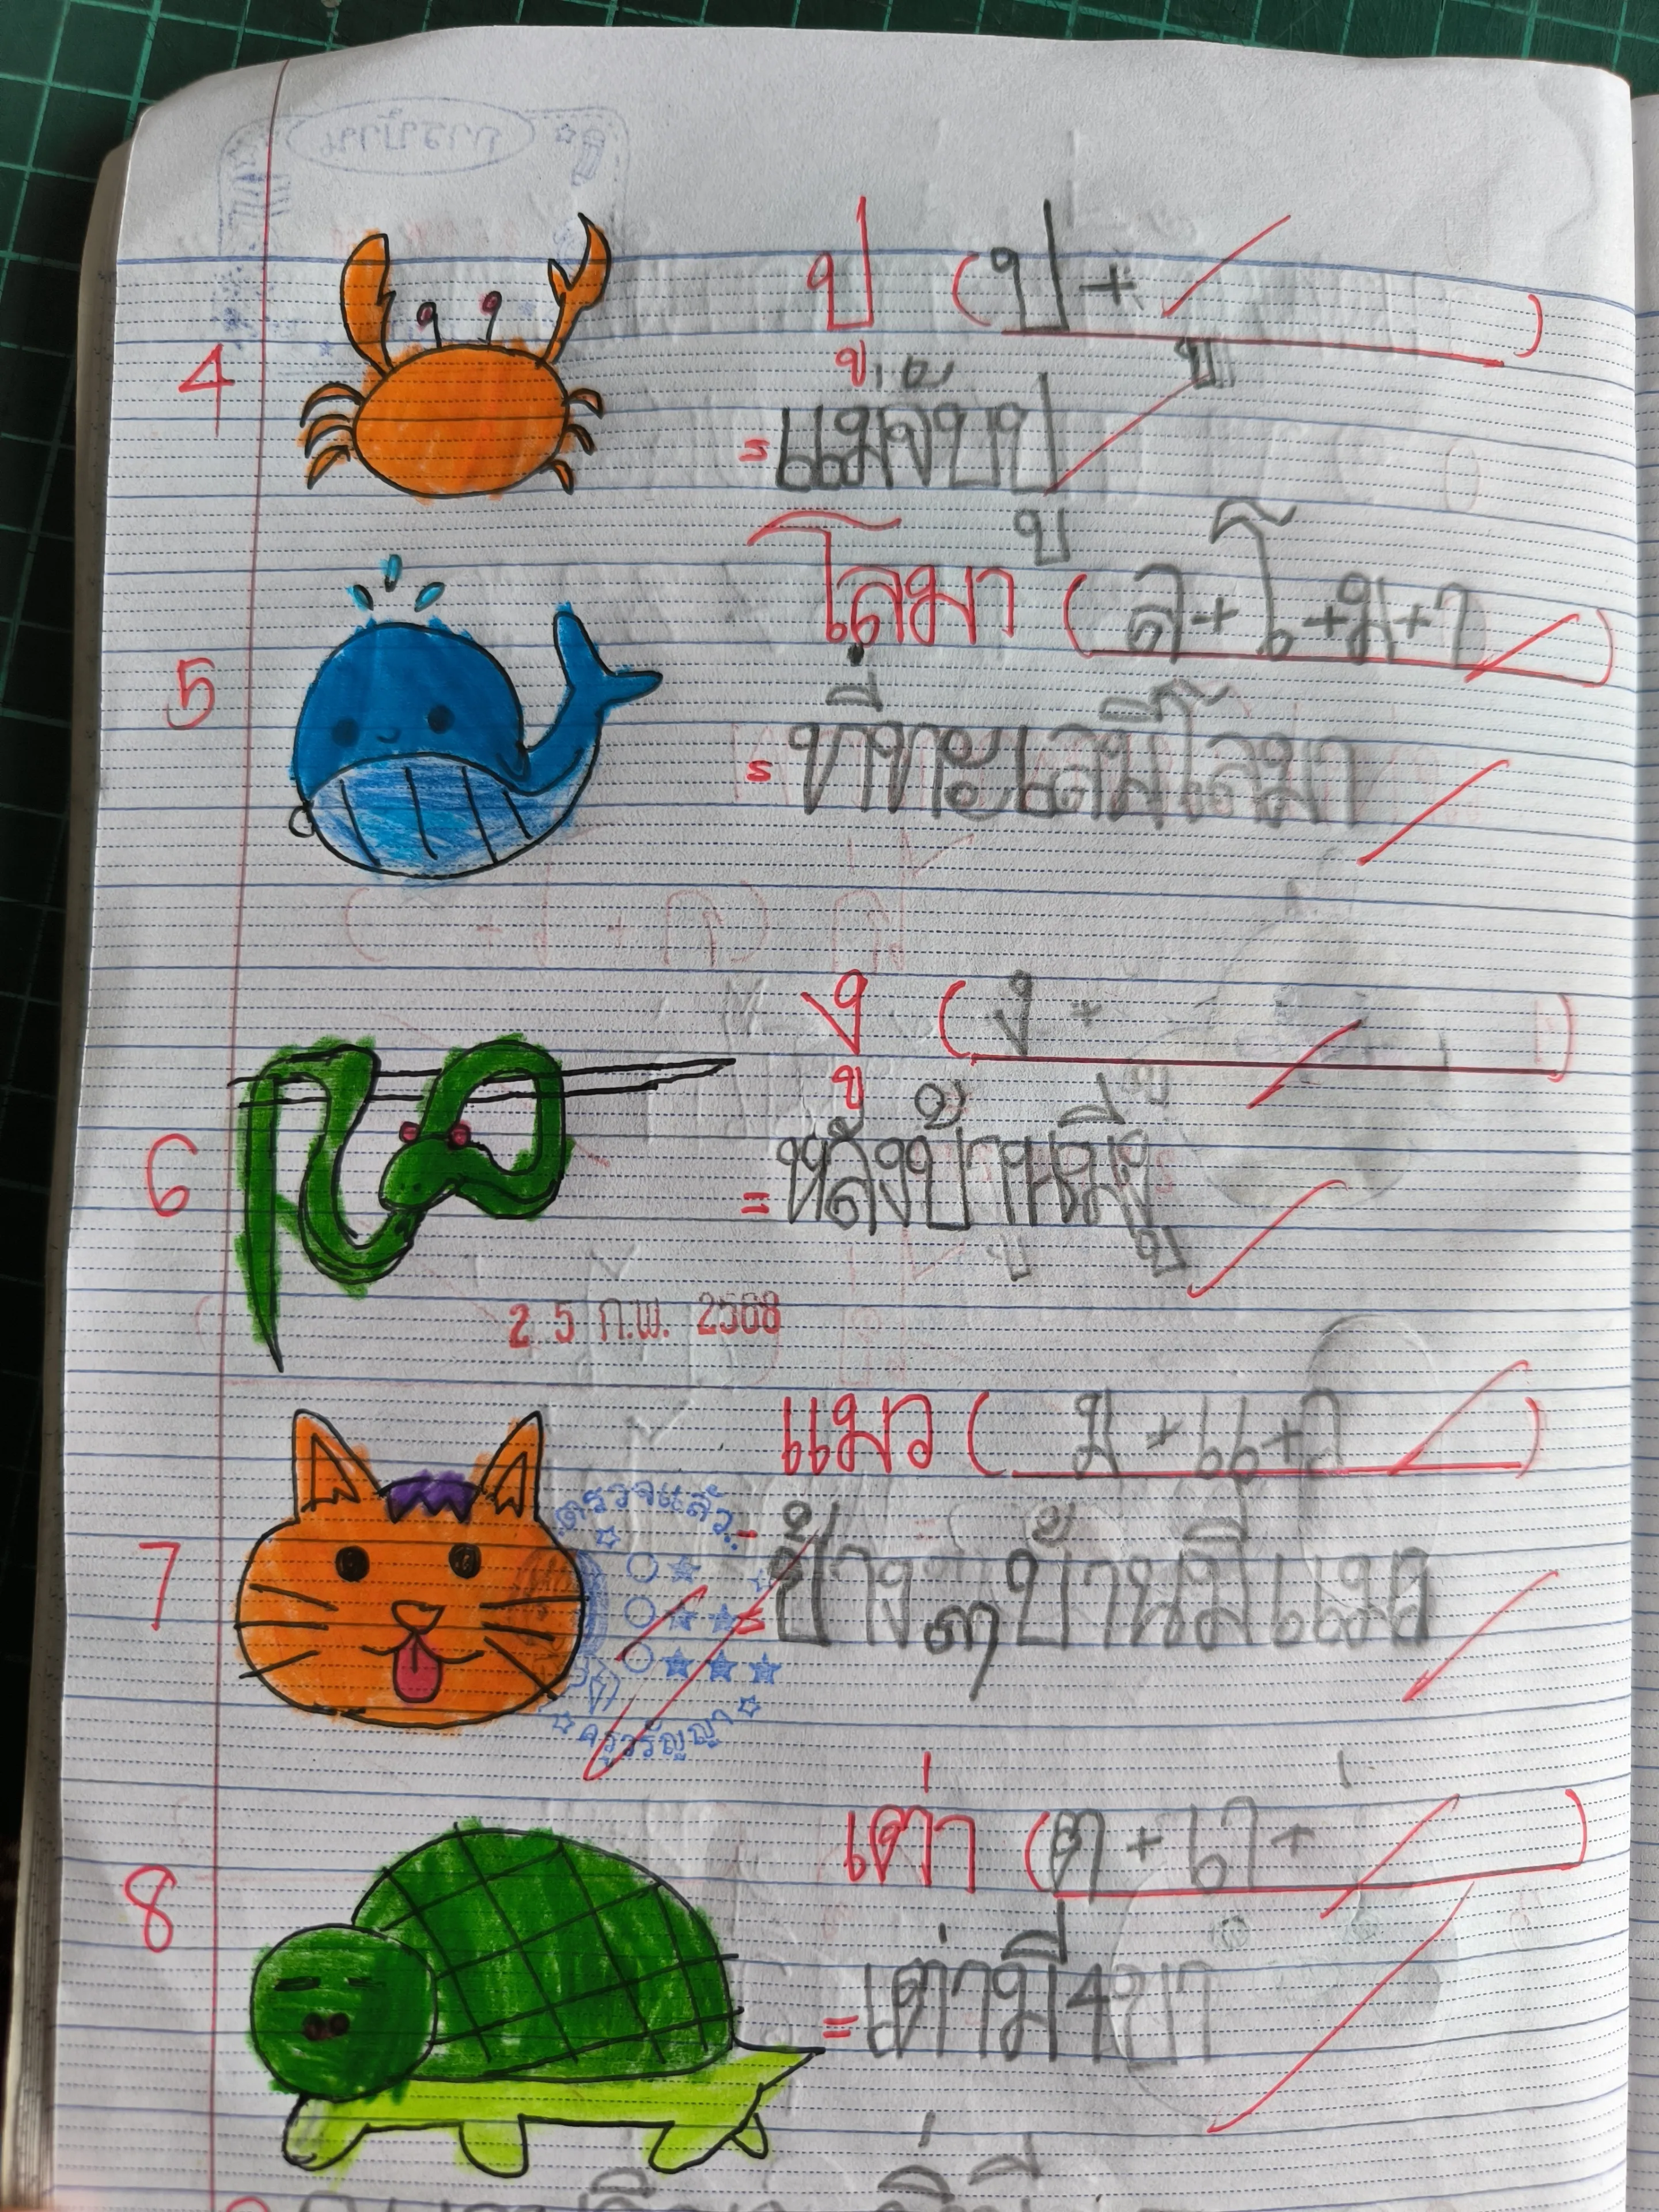 ปู (ป + ู)
4
= แม่จับปู
โลมา (ล+โ+ม+า)
5
= ที่ทะเลมีโลมา
งู (ง + ู)
6
= หลังบ้านมีงู
2 5 ก.พ. 2568
แมว (ม+แ+ว)
ตรวจแล้ว
7
= ข้างๆบ้านมีแมว
ครูวรัญญา
เต่า (ต + เา + ่)
8
= เต่ามี4ขา